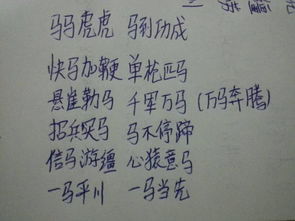 马马虎虎 马到功成
快马加鞭 单枪匹马
悬崖勒马 千军万马 (万马奔腾)
招兵买马 马不停蹄
信马游缰 心猿意马
一马平川 一马当先